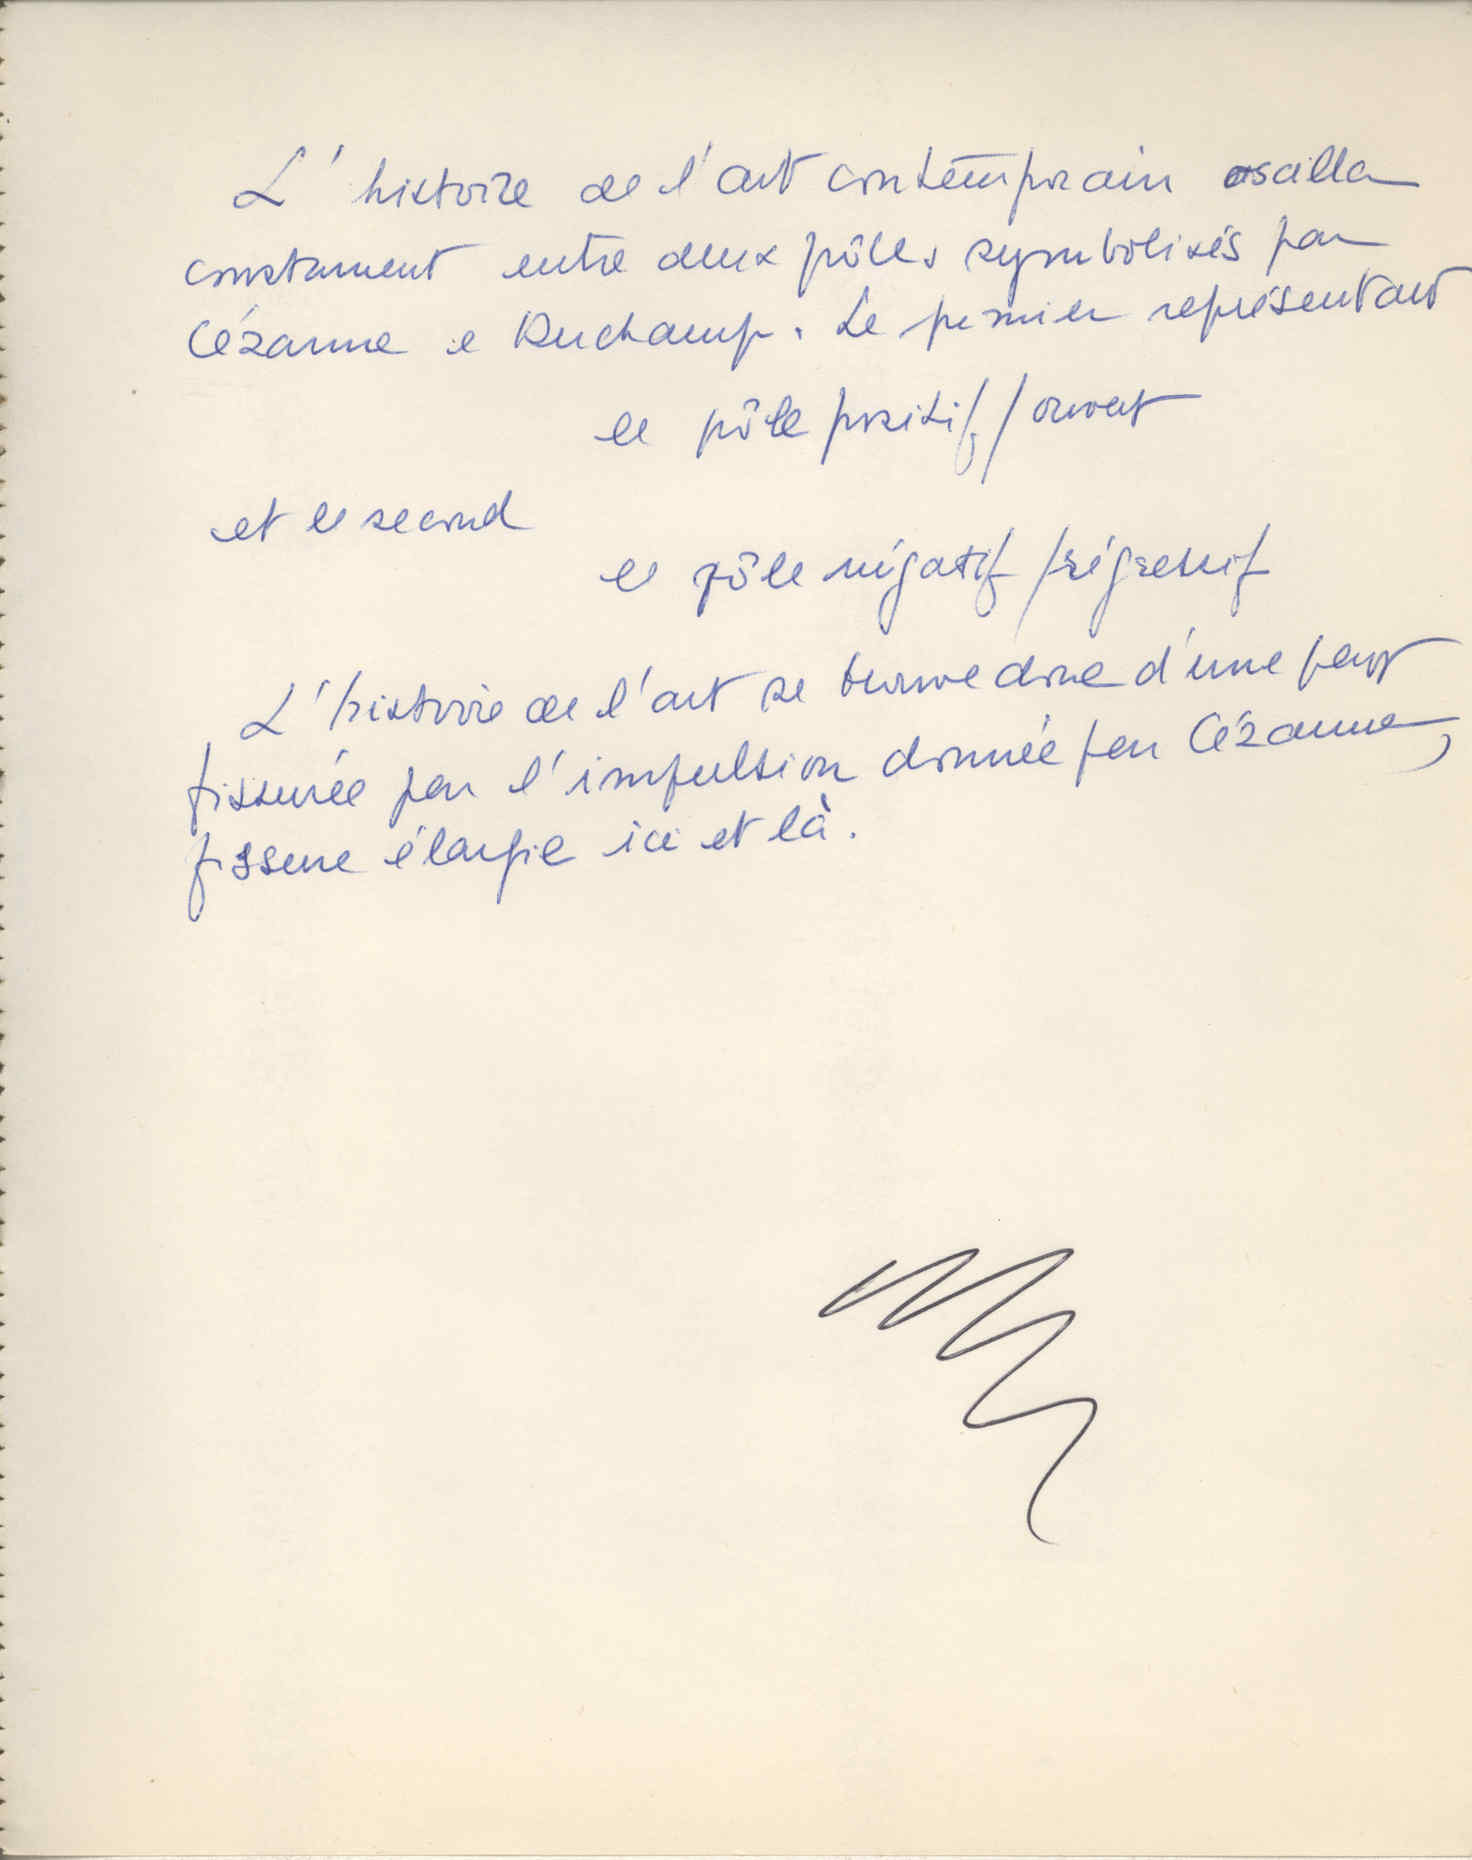 L'histoire de l'art contemporain oscilla
constamment entre deux pôles symbolisés par
Cézanne e Duchamp. Le premier représentant
le pôle positif/ouvert
et le second
le pôle négatif/régressif
L'histoire de l'art se trouve donc d'une part
fissurée par l'impulsion donnée par Cézanne,
fissure élargie ici et là.